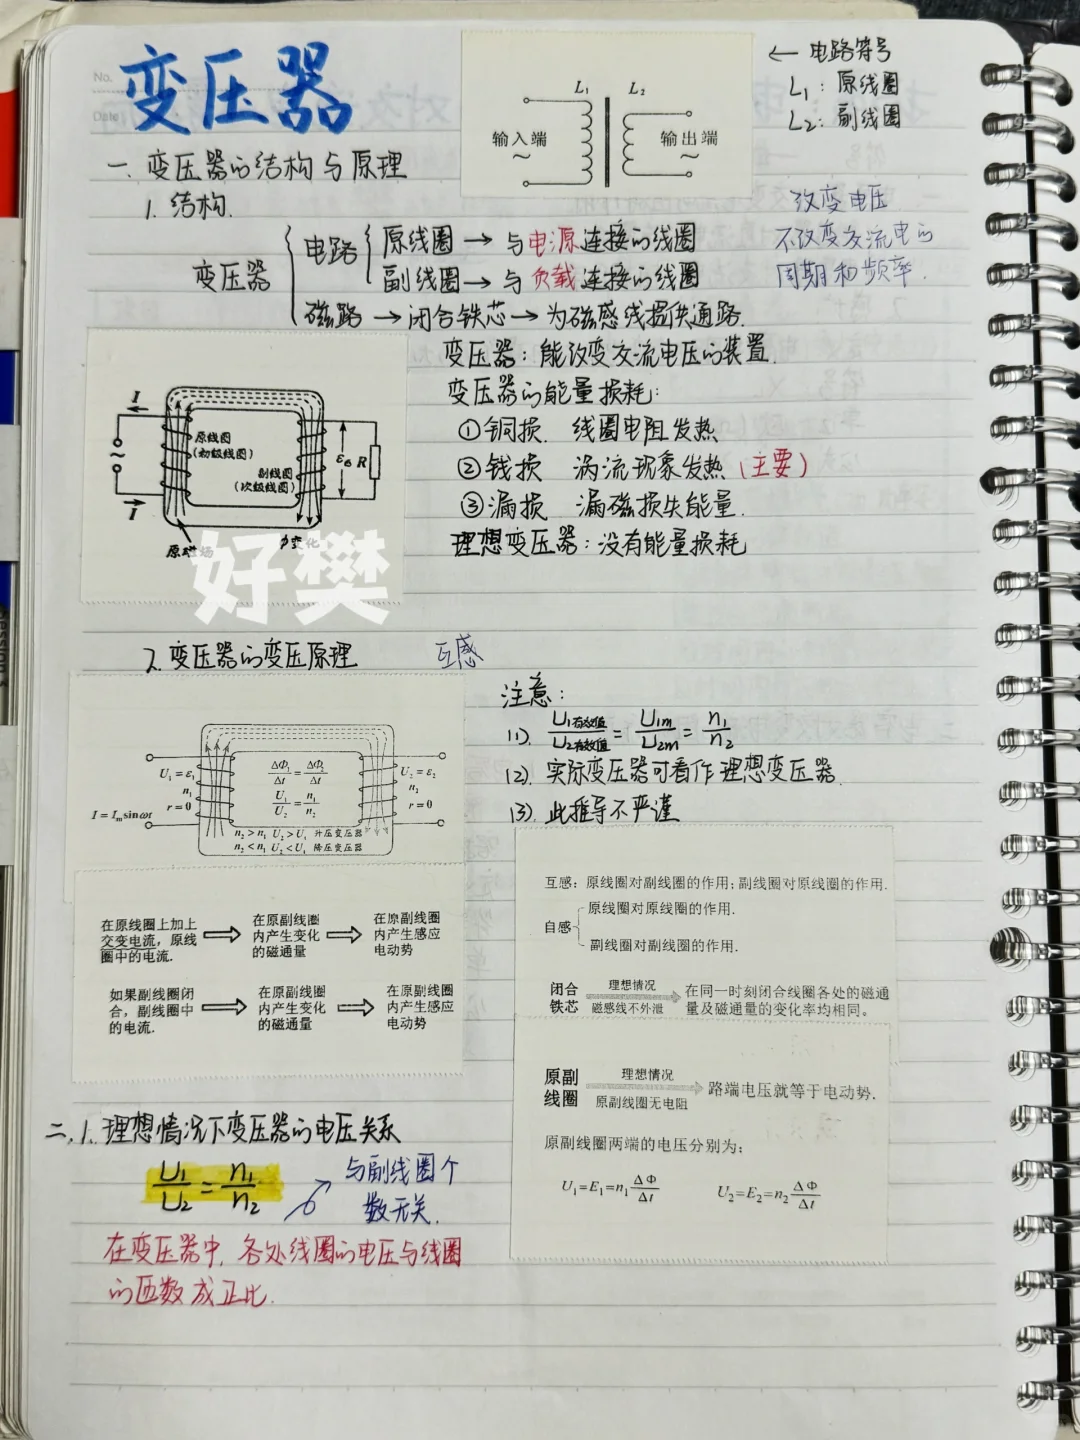 No.
Date
变压器
← 电路符号
L₁: 原线圈
L₂: 副线圈
L₁ L₂
输入端
~
输出端
~
一. 变压器的结构与原理
1. 结构.
改变电压
不改变交流电的
周期和频率.
变压器
电路
原线圈 → 与电源连接的线圈
副线圈 → 与负载连接的线圈
磁路 → 闭合铁芯 → 为磁感线提供通路.
变压器: 能改变交流电压的装置.
变压器的能量损耗:
①铜损. 线圈电阻发热
②铁损 涡流现象发热 (主要)
③漏损 漏磁损失能量.
理想变压器: 没有能量损耗
I
原线圈
(初级线圈)
副线圈
(次级线圈)
R
~
I
原磁场
变化
好樊
2. 变压器的变压原理 互感
U₁=ε₁
n₁
r=0
I=Iₘsinωt
ΔΦ₁/Δt=ΔΦ₂/Δt
U₁/U₂=n₁/n₂
U₂=ε₂
n₂
r=0
n₂>n₁ U₂>U₁ 升压变压器
n₂<n₁ U₂<U₁ 降压变压器
注意:
(1). U₁有效值/U₂有效值=U₁ₘ/U₂ₘ=n₁/n₂
(2). 实际变压器可看作理想变压器.
(3). 此推导不严谨
在原线圈上加上交变电流，原线圈中的电流.
在原副线圈内产生变化的磁通量
在原副线圈内产生感应电动势
如果副线圈闭合，副线圈中的电流.
在原副线圈内产生变化的磁通量
在原副线圈内产生感应电动势
互感: 原线圈对副线圈的作用; 副线圈对原线圈的作用.
自感
原线圈对原线圈的作用.
副线圈对副线圈的作用.
闭合铁芯
理想情况
磁感线不外泄
在同一时刻闭合线圈各处的磁通
量及磁通量的变化率均相同。
原副线圈
理想情况
原副线圈无电阻
路端电压就等于电动势.
原副线圈两端的电压分别为:
U₁=E₁=n₁ΔΦ/Δt U₂=E₂=n₂ΔΦ/Δt
二. 1. 理想情况下变压器的电压关系
U₁/U₂=n₁/n₂
与副线圈个
数无关.
在变压器中, 各处线圈的电压与线圈
的匝数成正比.